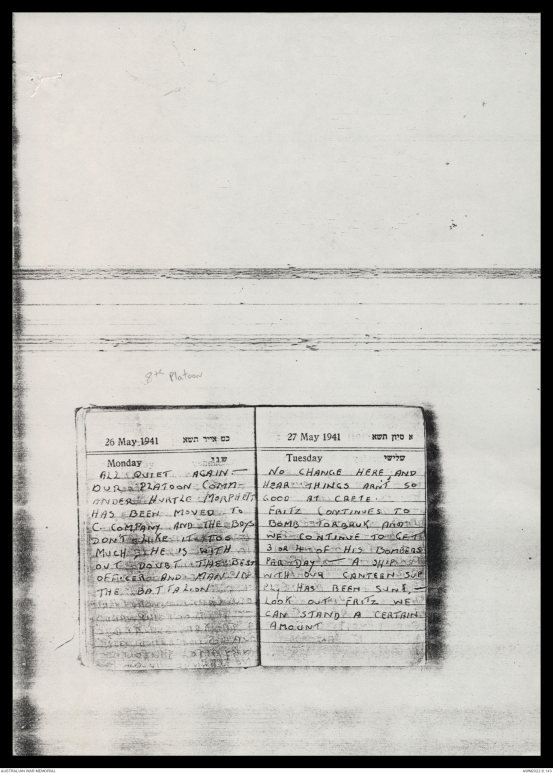 8th Platoon
26 May 1941 כט אייר תשא
Monday שני
ALL QUIET AGAIN.—
OUR PLATOON COMM-
ANDER HURTLE MORPHETT
HAS BEEN MOVED TO
C. COMPANY AND THE BOYS
DON'T LIKE IT TOO
MUCH, HE IS WITH
OUT DOUBT THE BEST
OFFICER AND MAN IN
THE BATTALION
27 May 1941 א סיון תשא
Tuesday שלישי
NO CHANGE HERE, AND
HEAR THINGS ARN'T SO
GOOD AT CRETE.
FRITZ CONTINUES TO
BOMB TOBRUK AND
WE CONTINUE TO GET
3 OR 4 OF HIS BOMBERS
PER DAY — A SHIP
WITH OUR CANTEEN SUP
PLY HAS BEEN SUNK,—
LOOK OUT FRITZ WE
CAN STAND A CERTAIN
AMOUNT
AUSTRALIAN WAR MEMORIAL